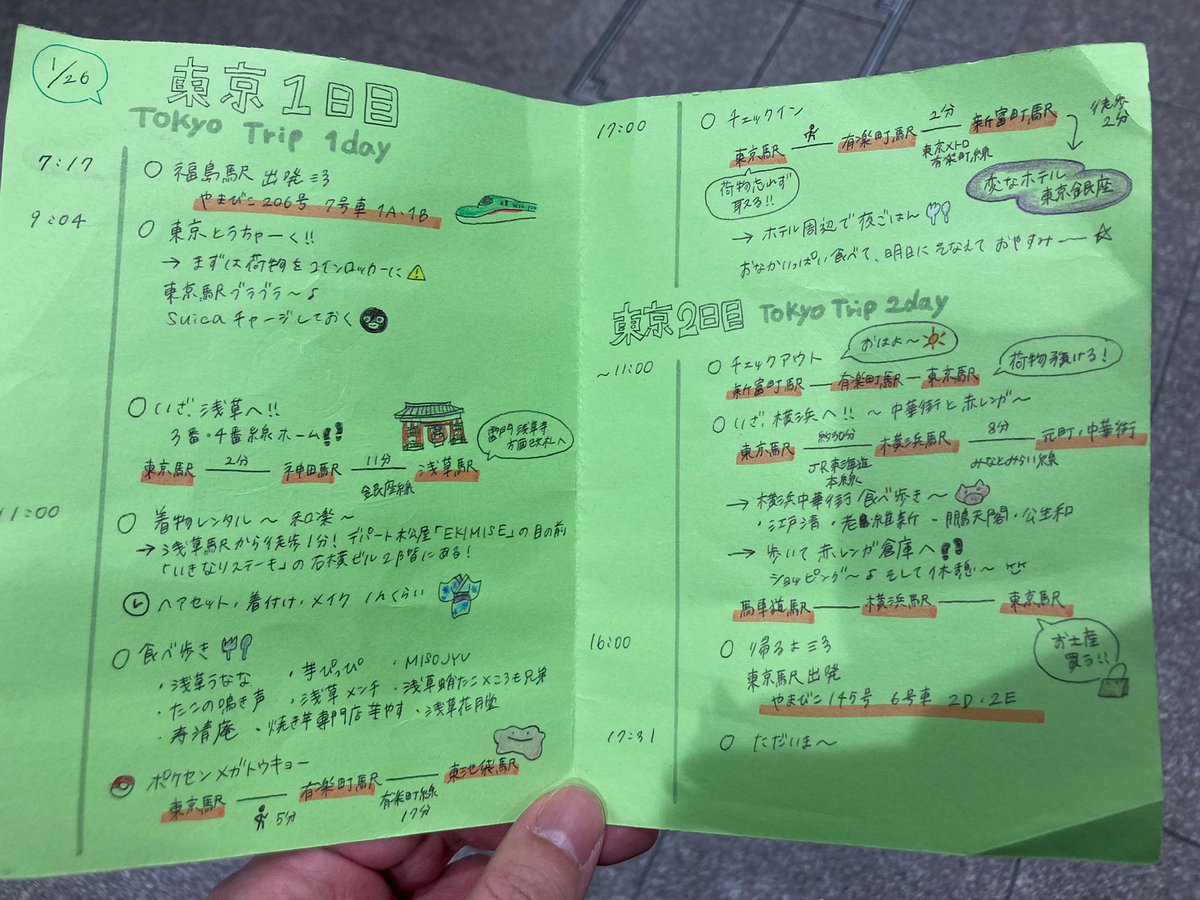 1/26
東京1日目
Tokyo Trip 1day
7:17
○ 福島駅 出発
やまびこ206号 7号車 1A・1B
9:04
○ 東京とうちゃーく!!
→ まずは荷物をコインロッカーに
東京駅ブラブラ〜♪
Suicaチャージしておく
○ いざ、浅草へ!!
3番・4番線ホーム
雷門浅草寺
方面改札へ
東京駅 2分 神田駅 11分 浅草駅
銀座線
11:00
○ 着物レンタル 〜 和楽 〜
→ 浅草駅から徒歩1分! デパート松屋「EKIMISE」の目の前
「いきなりステーキ」の右横ビル2階にある!
ヘアセット・着付け・メイク 1hくらい
○ 食べ歩き
・浅草うなな ・芋ぴっぴ ・MISOJYU
・たこの鳴き声 ・浅草メンチ ・浅草蛸たこ×ころも兄弟
・寿清庵 ・焼き芋専門店芋やす ・浅草花月堂
ポケセンメガトウキョー
東京駅 有楽町駅 東池袋駅
5分 有楽町線
17分
17:00
○ チェックイン
東京駅 有楽町駅 2分 新富町駅
東京メトロ
有楽町線
徒歩
2分
荷物忘れず
取る!!
変なホテル
東京銀座
→ ホテル周辺で夜ごはん
おなかいっぱい食べて、明日にそなえて おやすみー
東京2日目 Tokyo Trip 2day
おはよ〜
〜11:00
○ チェックアウト
荷物預ける!
新富町駅 有楽町駅 東京駅
○ いざ、横浜へ!! 〜中華街と赤レンガ〜
東京駅 約30分 横浜駅 8分 元町・中華街
JR東海道
本線
みなとみらい線
→ 横浜中華街 食べ歩き〜
・江戸清 ・老維新 ・鵬天閣 ・公生和
→ 歩いて 赤レンガ倉庫へ
ショッピング〜♪ そして休憩〜
馬車道駅 横浜駅 東京駅
お土産
買う!!
16:00
○ 帰るよ
東京駅出発
やまびこ145号 6号車 2D・2E
17:31
○ ただいま〜